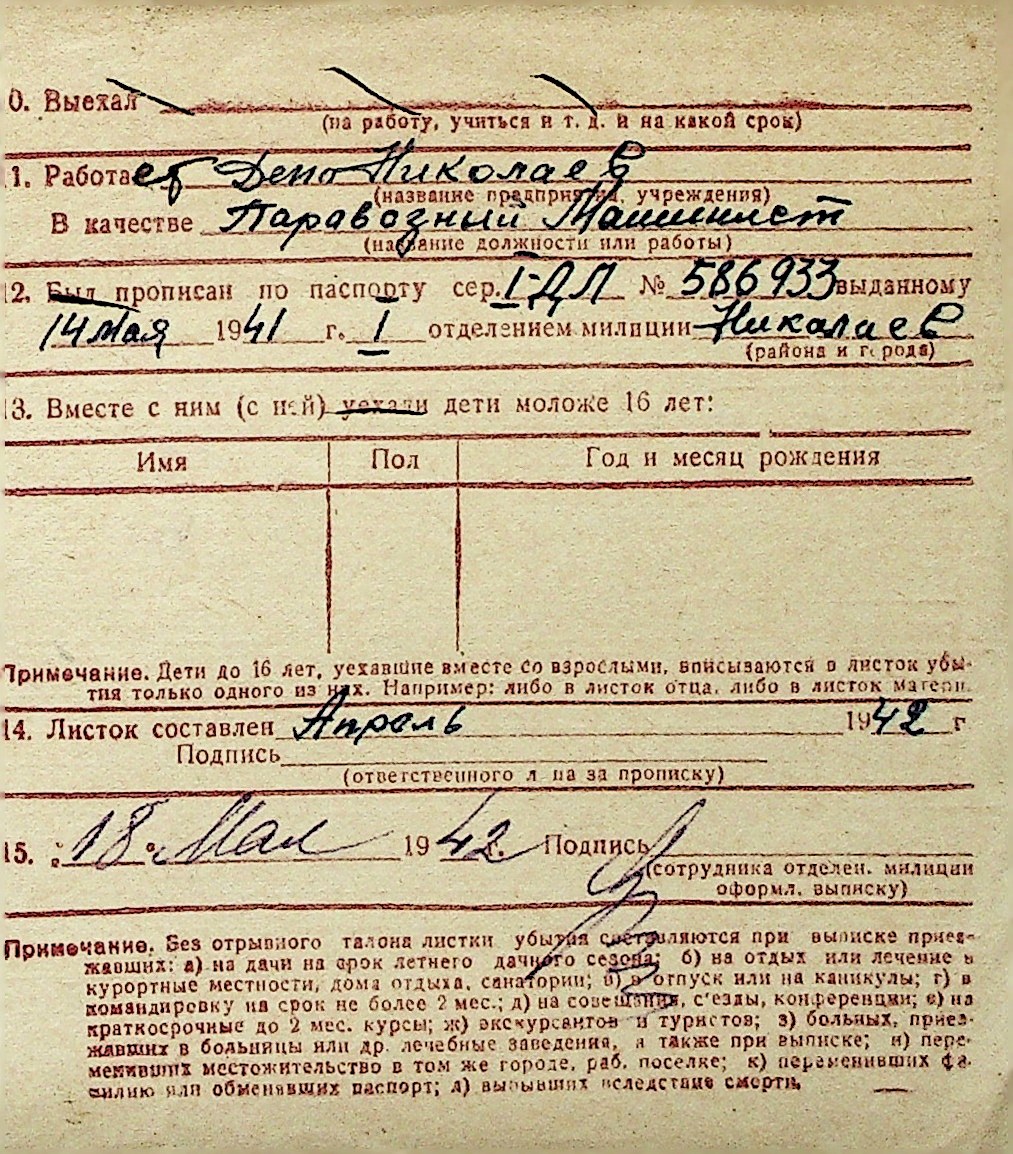 0. Выехал
(на работу, учиться и т. д. и на какой срок)
1. Работает Депо Николаев
(название предприятия, учреждения)
В качестве Паравозный Машинист
(название должности или работы)
2. Был прописан по паспорту сер. I-ДЛ № 586933 выданному
14 Мая 1941 г. I отделением милиции Николаев
(района и города)
13. Вместе с ним (с ней) уехали дети моложе 16 лет:
Имя Пол Год и месяц рождения
Примечание. Дети до 16 лет, уехавшие вместе со взрослыми, вписываются в листок убы-
тия только одного из них. Например: либо в листок отца, либо в листок матери.
14. Листок составлен Апрель 1942 г
Подпись
(ответственного лица за прописку)
15. „18“ Мая 1942 г. Подпись
(сотрудника отделен. милиции
оформл. выписку)
Примечание. Без отрывного талона листки убытия составляются при выписке приез-
жавших: а) на дачи на срок летнего дачного сезона; б) на отдых или лечение в
курортные местности, дома отдыха, санатории; в) в отпуск или на каникулы; г) в
командировку на срок не более 2 мес.; д) на совещания, с'езды, конференции; е) на
краткосрочные до 2 мес. курсы; ж) экскурсантов и туристов; з) больных, приез-
жавших в больницы или др. лечебные заведения, а также при выписке; и) пере-
менивших местожительство в том же городе, раб. поселке; к) переменивших фа-
милию или обменявших паспорт; л) выбывших вследствие смерти.